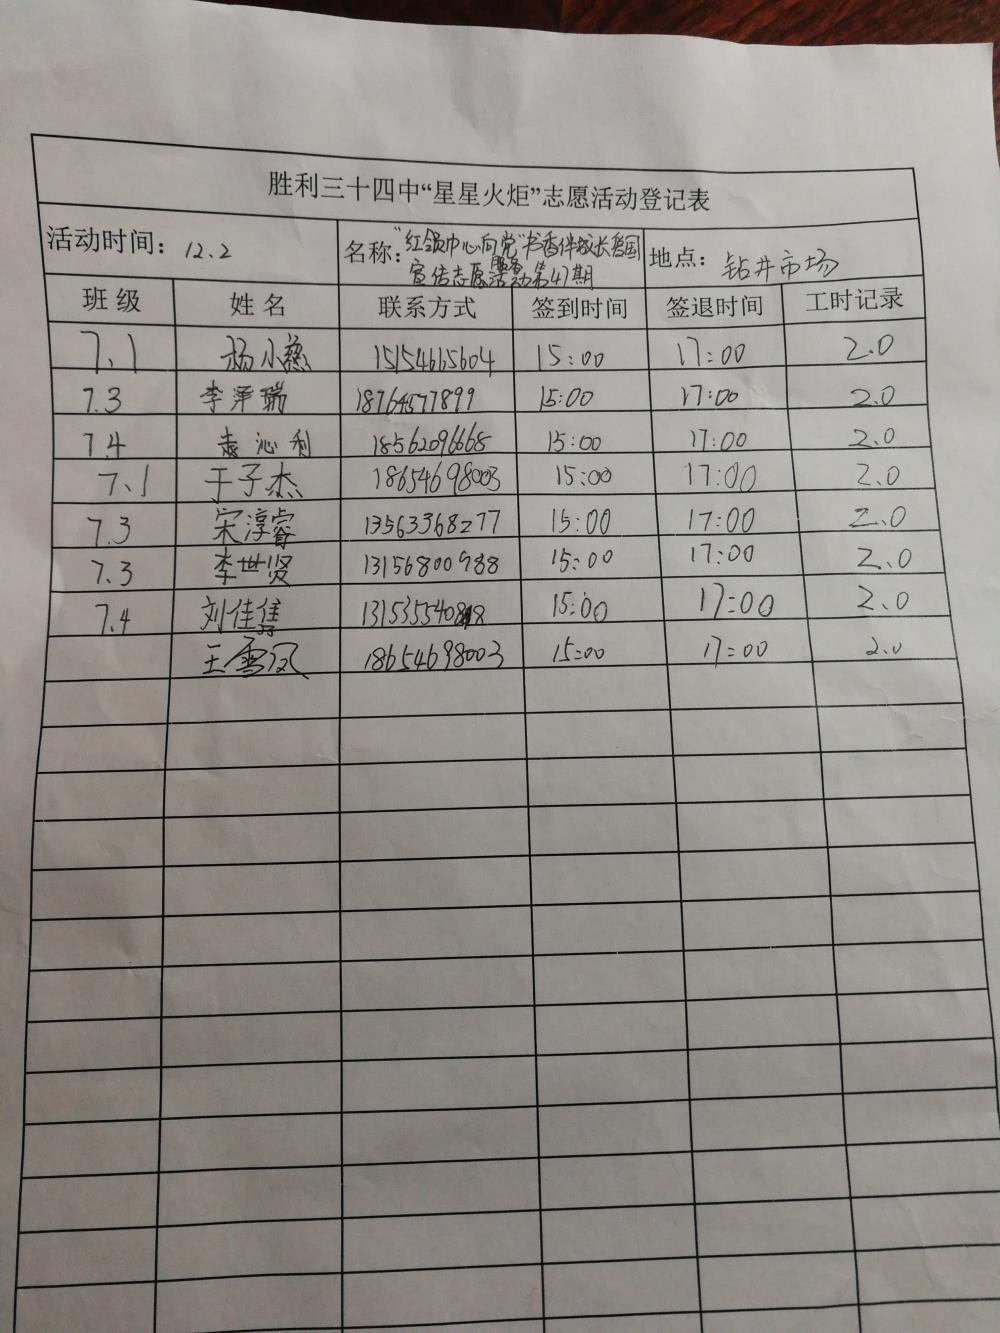 胜利三十四中“星星火炬”志愿活动登记表
活动时间：12.2 名称：“红领巾心向党”书香伴成长爱国宣传志愿服务活动第47期 地点：钻井市场
班级 姓名 联系方式 签到时间 签退时间 工时记录
7.1 杨小 15154615604 15:00 17:00 2.0
7.3 李泽瑞 18764577899 15:00 17:00 2.0
7.4 沁利 18562096668 15:00 17:00 2.0
7.1 于子杰 18654698003 15:00 17:00 2.0
7.3 宋淳睿 13563368277 15:00 17:00 2.0
7.3 李世贤 13156800988 15:00 17:00 2.0
7.4 刘佳 15:00 17:00 2.0
王雪 18654698003 15:00 17:00 2.0